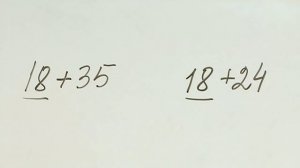 18+35 18+24